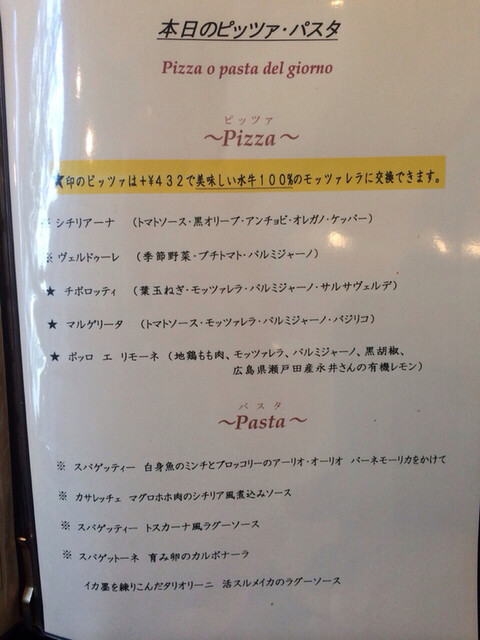 本日のピッツァ・パスタ
Pizza o pasta del giorno
ピッツァ
～Pizza～
★印のピッツァは+¥432で美味しい水牛100%のモッツァレラに交換できます。
※ シチリアーナ （トマトソース・黒オリーブ・アンチョビ・オレガノ・ケッパー）
※ ヴェルドゥーレ （季節野菜・プチトマト・パルミジャーノ）
★ チポロッティ （葉玉ねぎ・モッツァレラ・パルミジャーノ・サルサヴェルデ）
★ マルゲリータ （トマトソース・モッツァレラ・パルミジャーノ・バジリコ）
★ ポッロ エ リモーネ （地鶏もも肉、モッツァレラ、パルミジャーノ、黒胡椒、
広島県瀬戸田産永井さんの有機レモン）
パスタ
～Pasta～
※ スパゲッティー 白身魚のミンチとブロッコリーのアーリオ・オーリオ パーネモーリカをかけて
※ カサレッチェ マグロホホ肉のシチリア風煮込みソース
※ スパゲッティー トスカーナ風ラグーソース
※ スパゲットーネ 育み卵のカルボナーラ
イカ墨を練りこんだタリオリーニ 活スルメイカのラグーソース